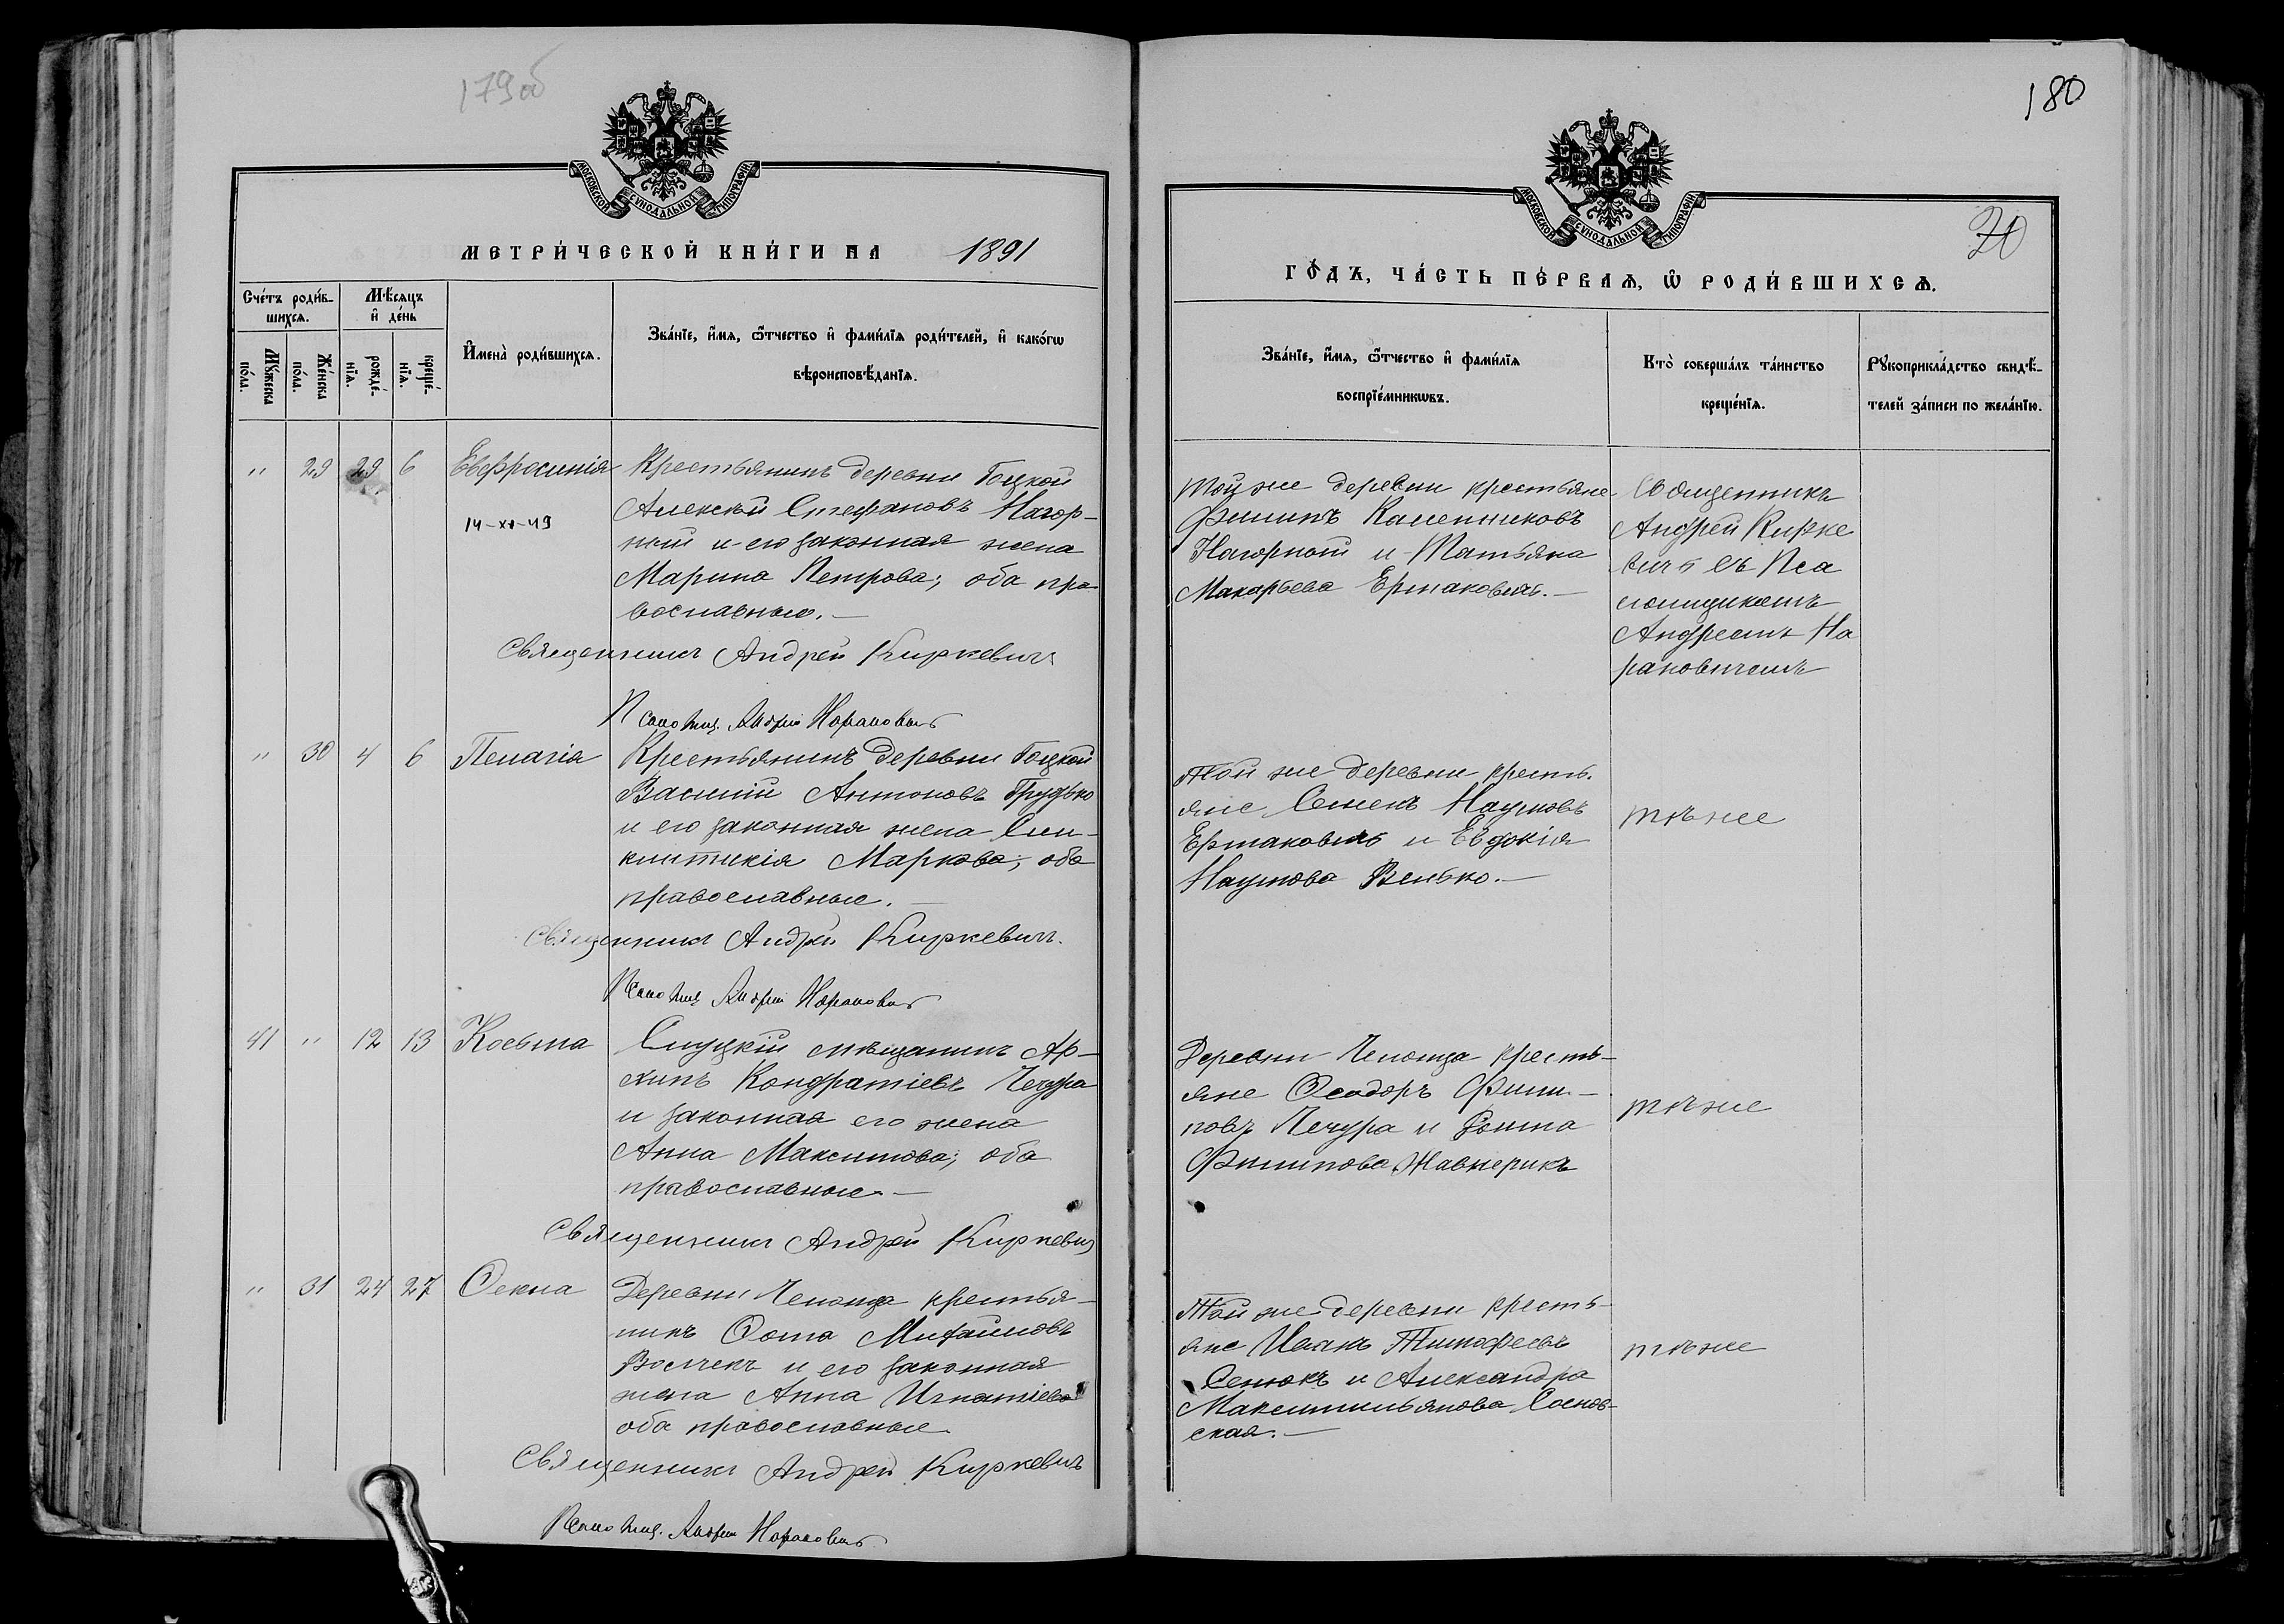 179об
МОСКОВСКОЙ СѴНОДАЛЬНОЙ ТИПОГРАФІИ
МЕТРИ́ЧЕСКОЙ КНИ́ГИ НА 1891
Сче́тъ роди́в-
шихсѧ.
Мѣ́сѧцъ
и҆ де́нь
И҆мена̀ роди́вшихсѧ.
Зва́нїе, и҆́мѧ, ѻ҆́тчество и҆ фами́лїѧ роди́телей, и҆ како́гѡ
вѣроисповѣ́данїѧ.
Мꙋ́жеска
по́ла.
Же́нска
по́ла.
рожде́-
нїѧ.
креще́-
нїѧ.
" 29 29 6 Евфросинія Крестьянинъ деревни Гоцкой
Алексѣй Стефановъ Нагор-
14-XI-49
ный и его законная жена
Марина Петрова; оба пра-
вославные.—
Священникъ Андрей Киркевичъ
Псаломщ. Андрей Нарановичъ
" 30 4 6 Пелагія Крестьянинъ деревни Гоцкой
Василій Антоновъ Грудько
и его законная жена Син-
клитикія Маркова; оба
православные.—
Священникъ Андрей Киркевичъ.
Псаломщ Андрей Нарановичъ
41 " 12 13 Косьма Слуцкій мѣщанинъ Ар-
хипъ Кондратіевъ Печура
и законная его жена
Анна Максимова; оба
православные.—
Священникъ Андрей Киркевичъ
" 31 24 27 Ѳекла Деревни Чепонца крестья-
нинъ Ѳома Михайловъ
Волчекъ и его законная
жена Анна Игнатіева
оба православные.
Священникъ Андрей Киркевичъ
Псаломщ. Андрей Нарановичъ
180
МОСКОВСКОЙ СѴНОДАЛЬНОЙ ТИПОГРАФІИ
ГО́ДЪ, ЧА́СТЬ ПЕ́РВАѦ, Ѡ҆ РОДИ́ВШИХСѦ.
Зва́нїе, и҆́мѧ, ѻ҆́тчество и҆ фами́лїѧ
воспрїе́мникѡвъ.
Кто̀ соверша́лъ та́инство
креще́нїѧ.
Рꙋкоприкла́дство свидѣ́-
телей за́писи по жела́нїю.
Той же деревни крестьяне
Филипъ Калениковъ
Нагорный и Татьяна
Макарьева Ермаковичъ.—
Священникъ
Андрей Кирке
вичъ съ Пса
ломщикомъ
Андреемъ На
рановичемъ
Той же деревни кресть-
яне Семенъ Наумовъ
Ермаковичъ и Евдокія
Наумова Велько.—
тѣ же
Деревни Чепонца кресть-
яне Ѳеодоръ Филип-
повъ Печура и
Филипова Жавнерикъ
тѣ же
Той же деревни кресть-
яне Иванъ Тимофеевъ
Сенюкъ и Александра
Максимильянова Соснов-
ская.—
тѣ же